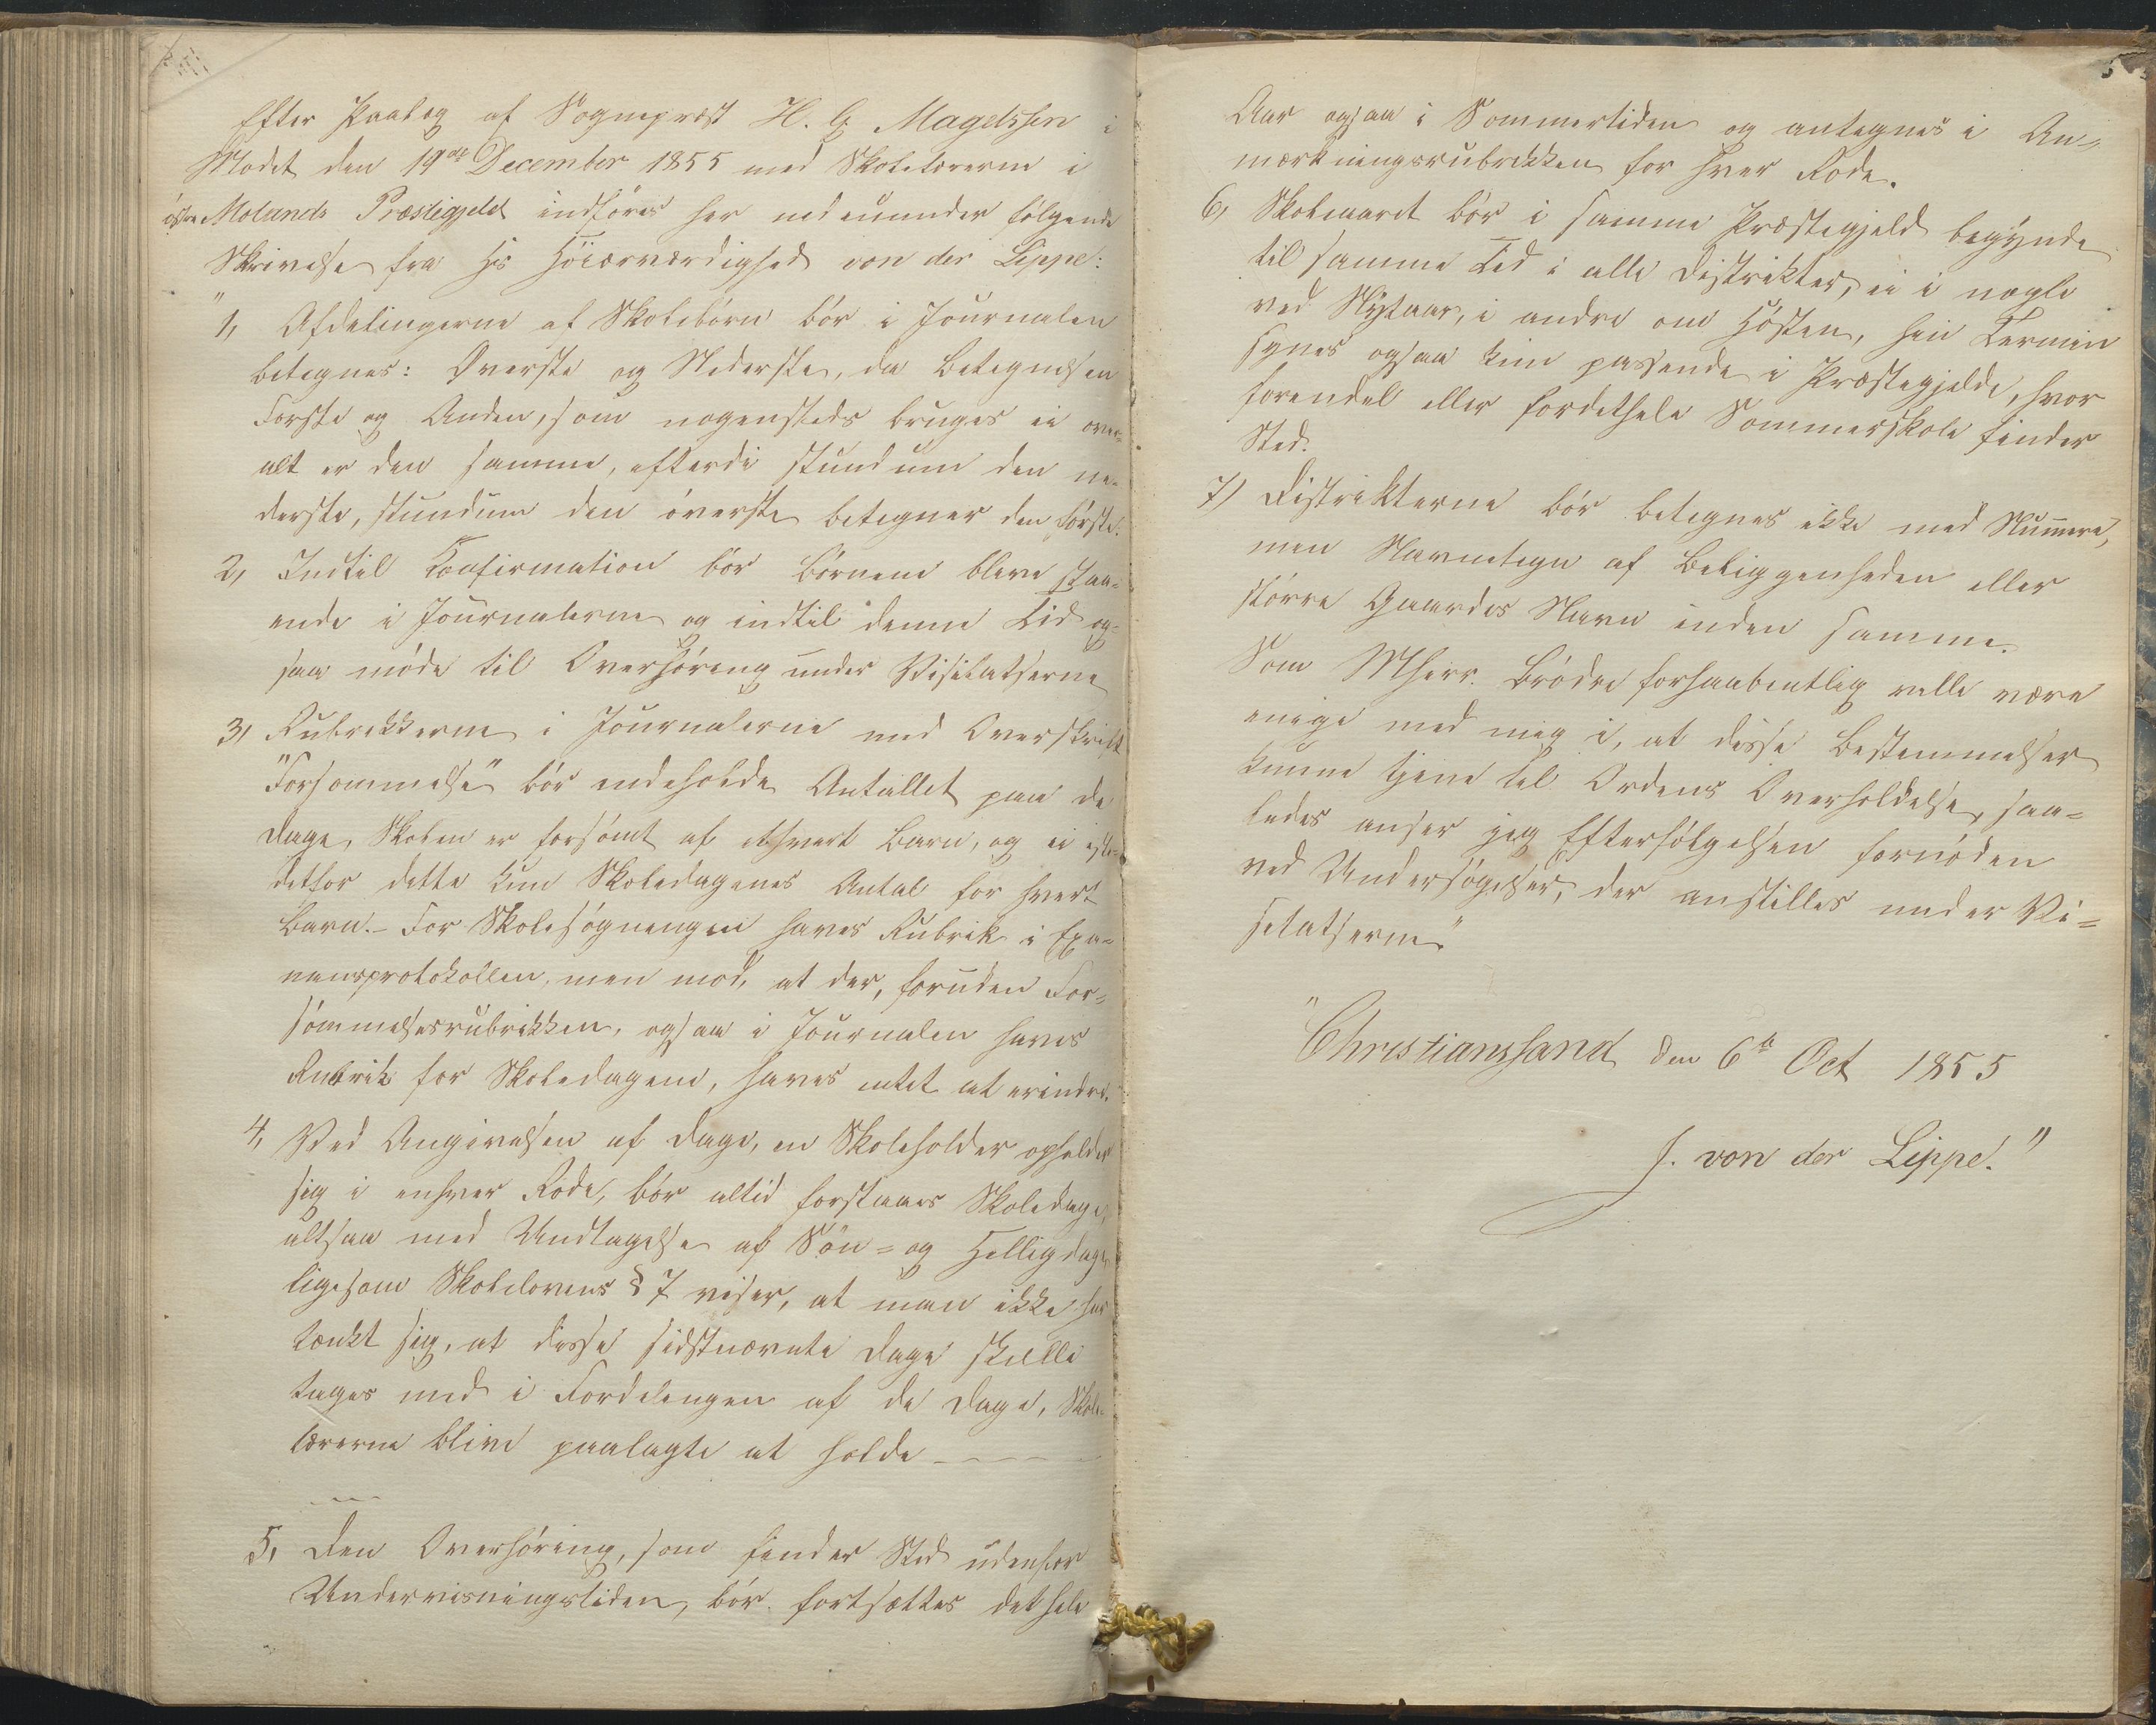 Efter Paalæg af Sognepræst H. G. Magelssen i
Mødet den 19de December 1855 med Skolelærerne i
østre Molands Præstegjeld indføres her nedenunder følgende
Skrivelse fra Hs Höiærværdighed von der Lippe:
"1, Afdelingerne af Skolebørn bör i Journalen
betegnes: Øverste og Nederste, da Betegnelsen
Første og Anden, som nogensteds bruges ei over-
alt er den samme, efterdi stundum den ne-
derste, stundum den överste betegner den förste.
2, Indtil Confirmation bör Börnene blive staa-
ende i Journalerne og indtil denne Tid og-
saa möde til Overhöring under Visitatserne
3, Rubrikkerne i Journalerne med Overskrift
"Forsømmelse" bör indeholde Antallet paa de
Dage, Skolen er forsömt af ethvert Barn, og ei iste-
detfor dette kun Skoledagenes Antal for hvert
Barn. - For Skolesögningen haves Rubrik i Exa-
mensprotokollen, men mod, at der, foruden For-
sömmelsesrubrikken, ogsaa i Journalen haves
Rubrik for Skoledagene, haves intet at erindre.
4, Ved Angivelsen af Dage, en Skoleholder opholder
sig i enhver Rode, bör altid forstaaes Skoledage,
altsaa med Undtagelse af Sön- og Helligdage,
ligesom Skolelovens § 7 viser, at man ikke har
tænkt sig, at disse sidstnævnte Dage skulle
tages med i Fordelingen af de Dage, Skole-
lærerne blive paalagte at holde - - - - -
- - -
5, Den Overhöring, som finder Sted udenfor
Undervisningstiden, bör fortsættes det hele
5
Aar ogsaa i Sommertiden og antegnes i An-
mærkningsrubrikken for hver Rode.
6, Skoleaaret bör i samme Præstegjeld begynde
til samme Tid i alle Distrikter, ei i nogle
ved Nytaar, i andre om Hösten, hin Termin
synes ogsaa kun passende i Præstegjelde, hvor
forendel eller fordethele Sommerskole finder
Sted.
7) Distrikterne bör betegnes ikke med Numere,
men Navnetegn af Beliggenheden eller
störra Gaardes Navn inden samme.
Som Mherr. Brödre forhaabentlig ville være
enige med mig i, at disse Bestemmelser
kunne tjene til Ordens Overholdelse, saa-
ledes anser jeg Efterfölgelsen fornöden
ved Undersögelser, der anstilles under Vi-
sitatserne."
"Christianssand den 6te Oct 1855
J. von der Lippe."